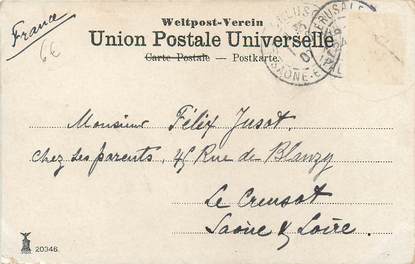 France
6€
Weltpost-Verein
Union Postale Universelle
Carte Postale — Postkarte.
Monsieur Félix Jusot,
chez ses parents, 45 Rue de Blanzy
Le Creusot
Saône & Loire.
20346